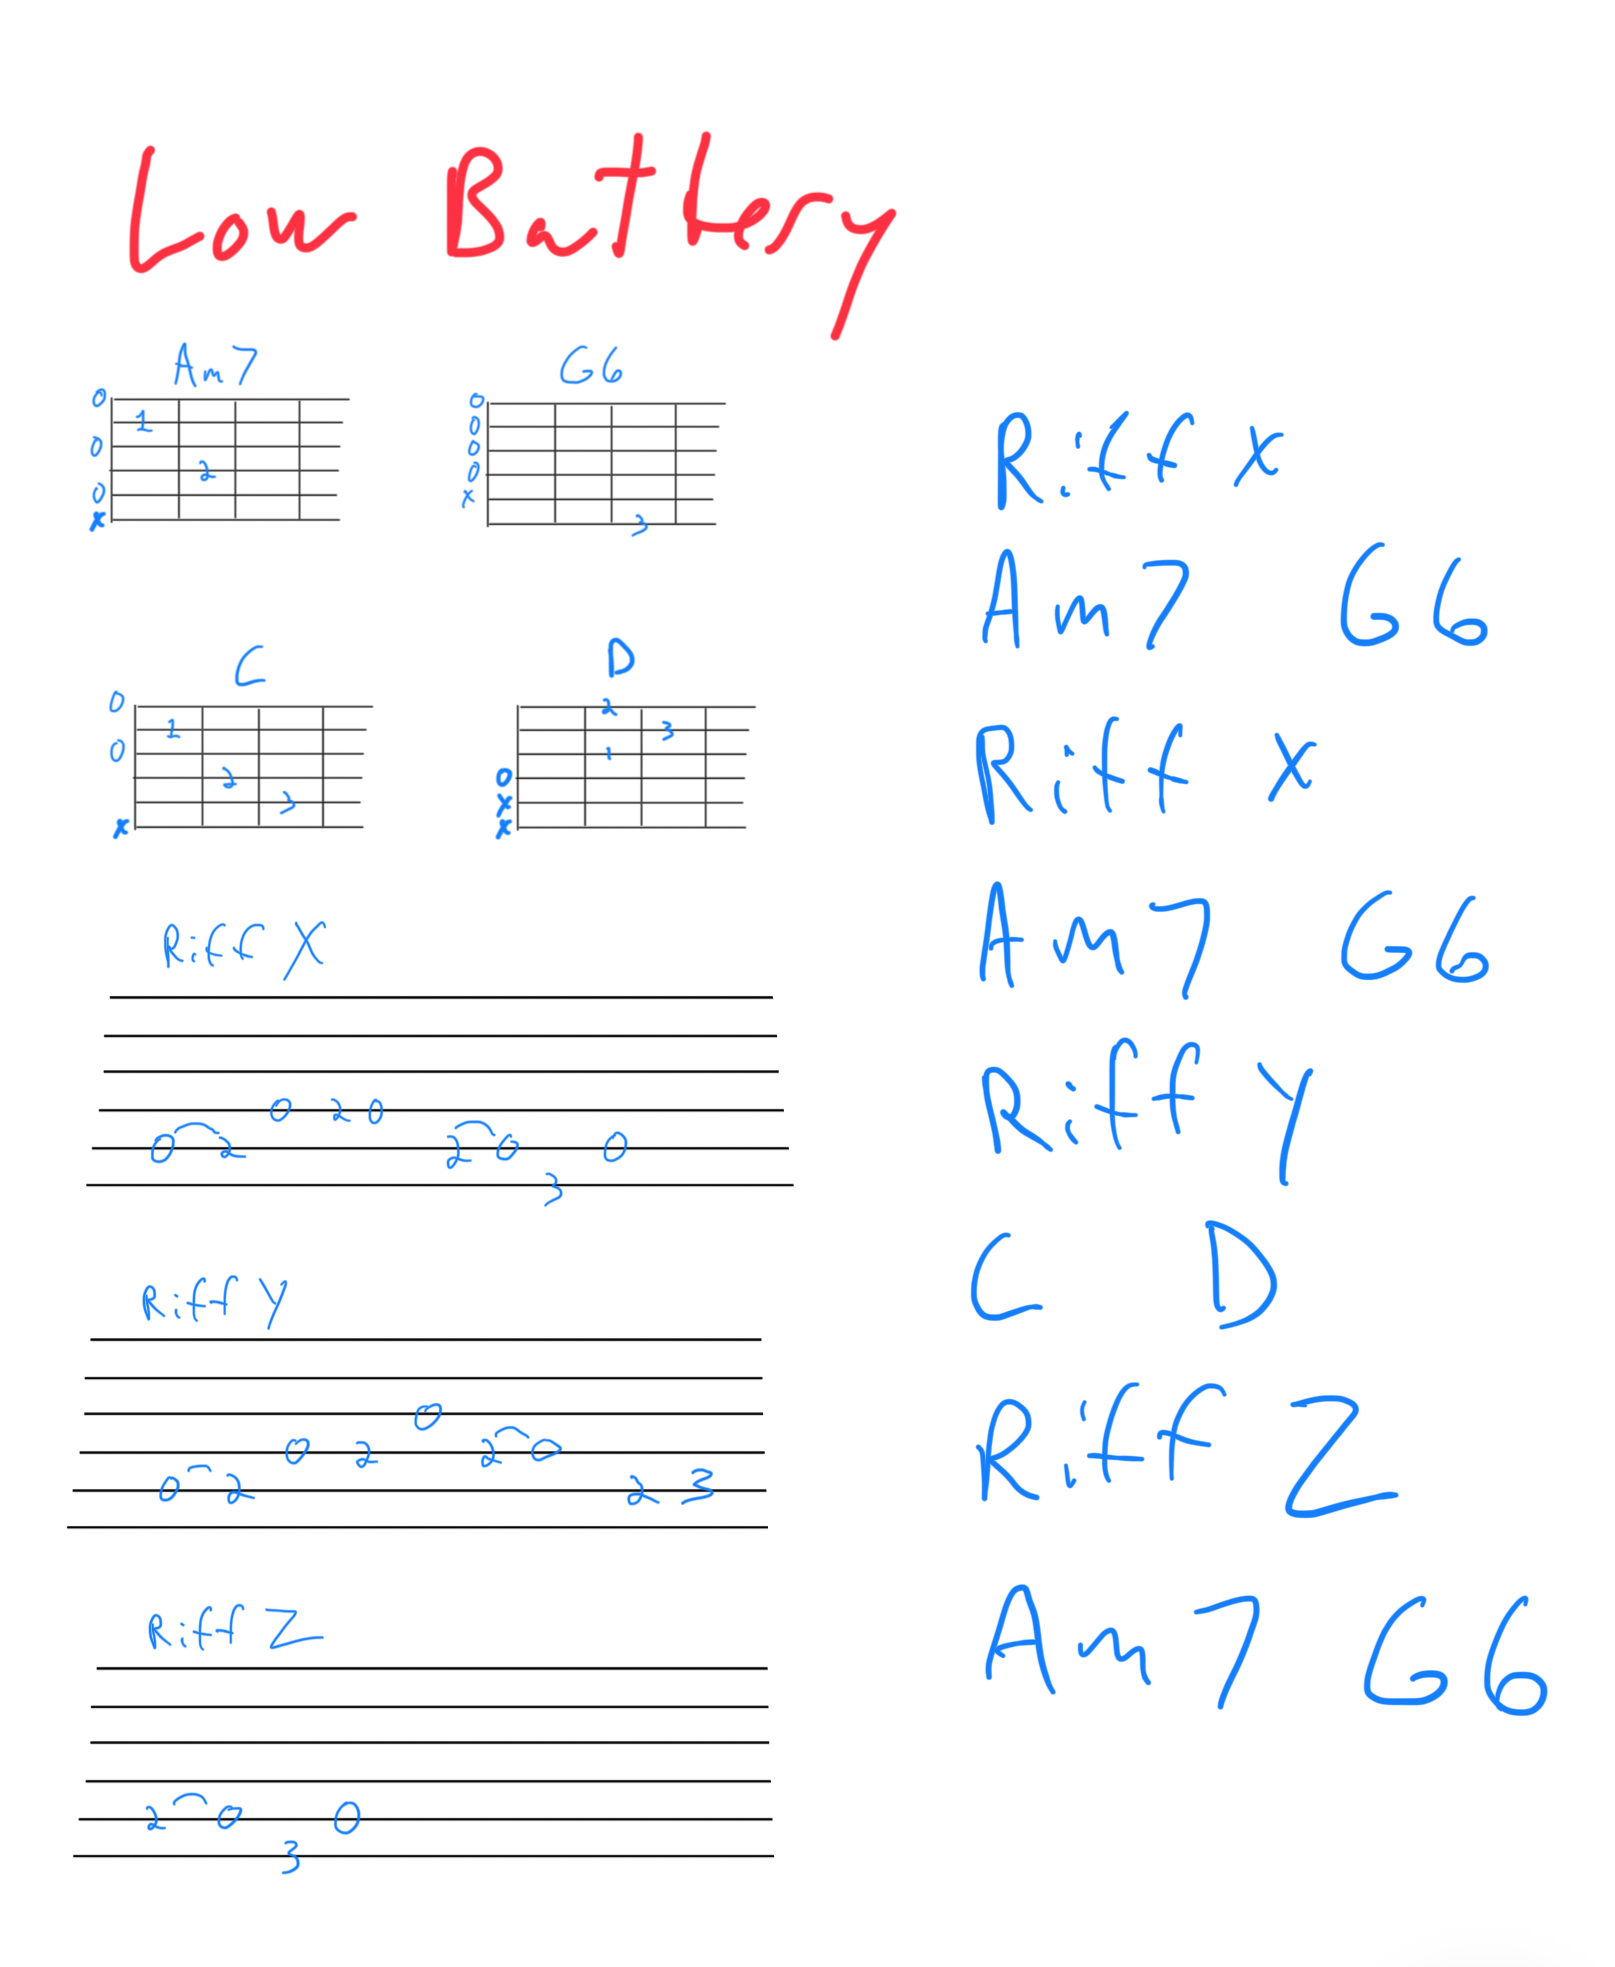 Low Battery
Am7 G6
0 0
1 0
0 0
2 0
0 x
x 3
C D
0 2
1 3
0 1
2 0
3 x
x x
Riff X
0 2 0
0 2 2 0 0
3
Riff Y
0
0 2 2 0
0 2 2 3
Riff Z
2 0 0
3
Riff X
Am7 G6
Riff X
Am7 G6
Riff Y
C D
Riff Z
Am7 G6